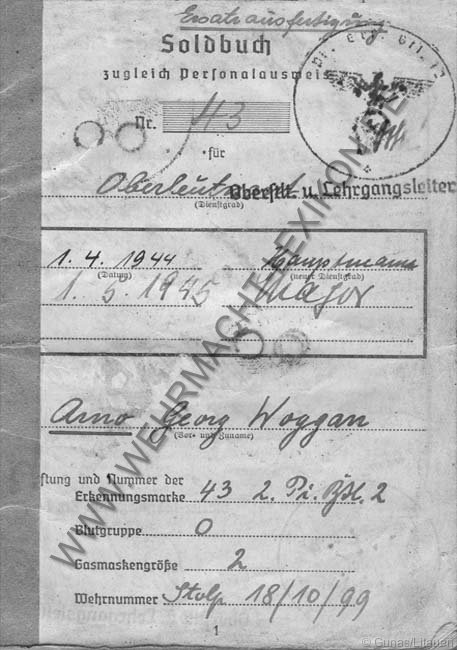 Ersatzausfertigung
Soldbuch
zugleich Personalausweis
Nr. 43
für
Oberleutnant
Oberstlt. u. Lehrgangsleiter
(Dienstgrad)
1. 4. 1944 Hauptmann
(Datum) (neuer Dienstgrad)
1. 5. 1945 Major
Arno Georg Woggan
(Vor- und Zuname)
Nummer der
Erkennungsmarke 43 2. Pi. Btl. 2
Blutgruppe O
Gasmaskengröße 2
Wehrnummer Stolp 18/10/99
1
WWW.WEHRMACHT-LEXIKON.DE
© Gunas/Litauen